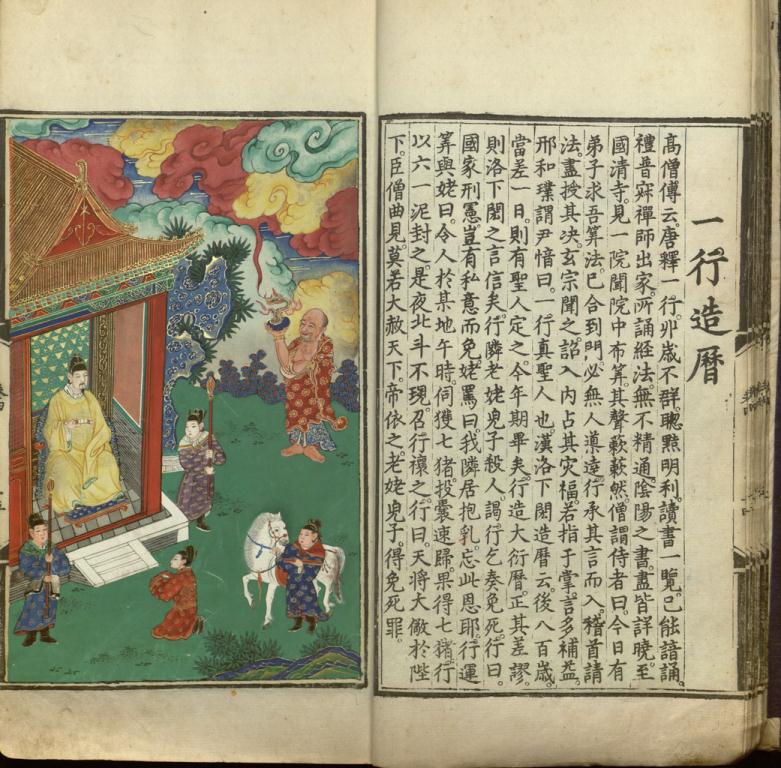 一行造曆
高僧傳云。唐釋一行。丱歲不群。聰黠明利。讀書一覽。已能諳誦。
禮普寂禪師出家。所誦經法。無不精通。陰陽之書。盡皆詳曉。至
國清寺。見一院聞院中布筭。其聲蔌蔌然。僧謂侍者曰。今日有
弟子求吾筭法。已合到門。必無人導達。行承其言而入。稽首請
法。盡授其決。玄宗聞之。詔入內占其灾福。若指于掌。言多補益。
邢和璞謂尹愔曰。一行真聖人也。漢洛下閎造曆云。後八百歲。
當差一日。則有聖人定之。今年期畢矣。行造大衍曆。正其差謬。
則洛下閎之言信矣。行隣老姥兒子殺人。謁行乞奏免死。行曰。
國家刑憲。豈有私意而免。姥罵曰。我隣居抱乳。忘此恩耶。行運
筭與姥曰。令人於某地午時。伺獲七猪。投囊速歸。果得七猪。行
以六一泥封之。是夜北斗不現。召行禳之。行曰。天將大儆於陛
下。臣僧曲見。莫若大赦天下。帝依之。老姥兒子。得免死罪。